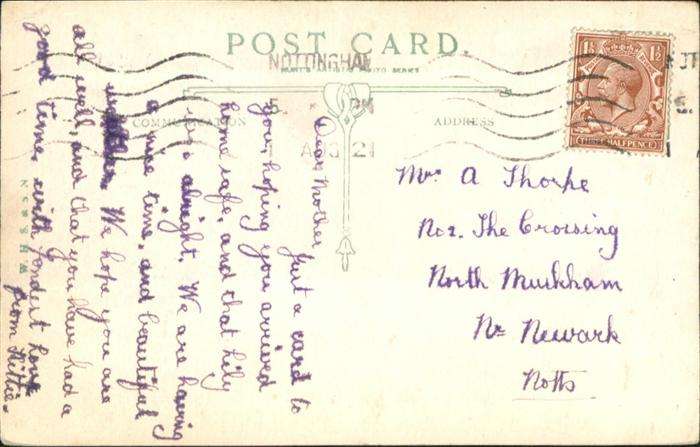 POST CARD.
NOTTINGHAM
5 PM
AUG 21
COMMUNICATION
ADDRESS
1½ 1½
THREE HALFPENCE
Dear Mother
Just a card to
you, hoping you arrived
home safe, and that Lily
is alright. We are having
a nice time, and beautiful
weather. We hope you are
all well, and that you have had a
good time, with fondest love
from
Mrs A Thorpe
No 2. The Crossing
North Muskham
Nr Newark
Notts
W.H.S. & S.N